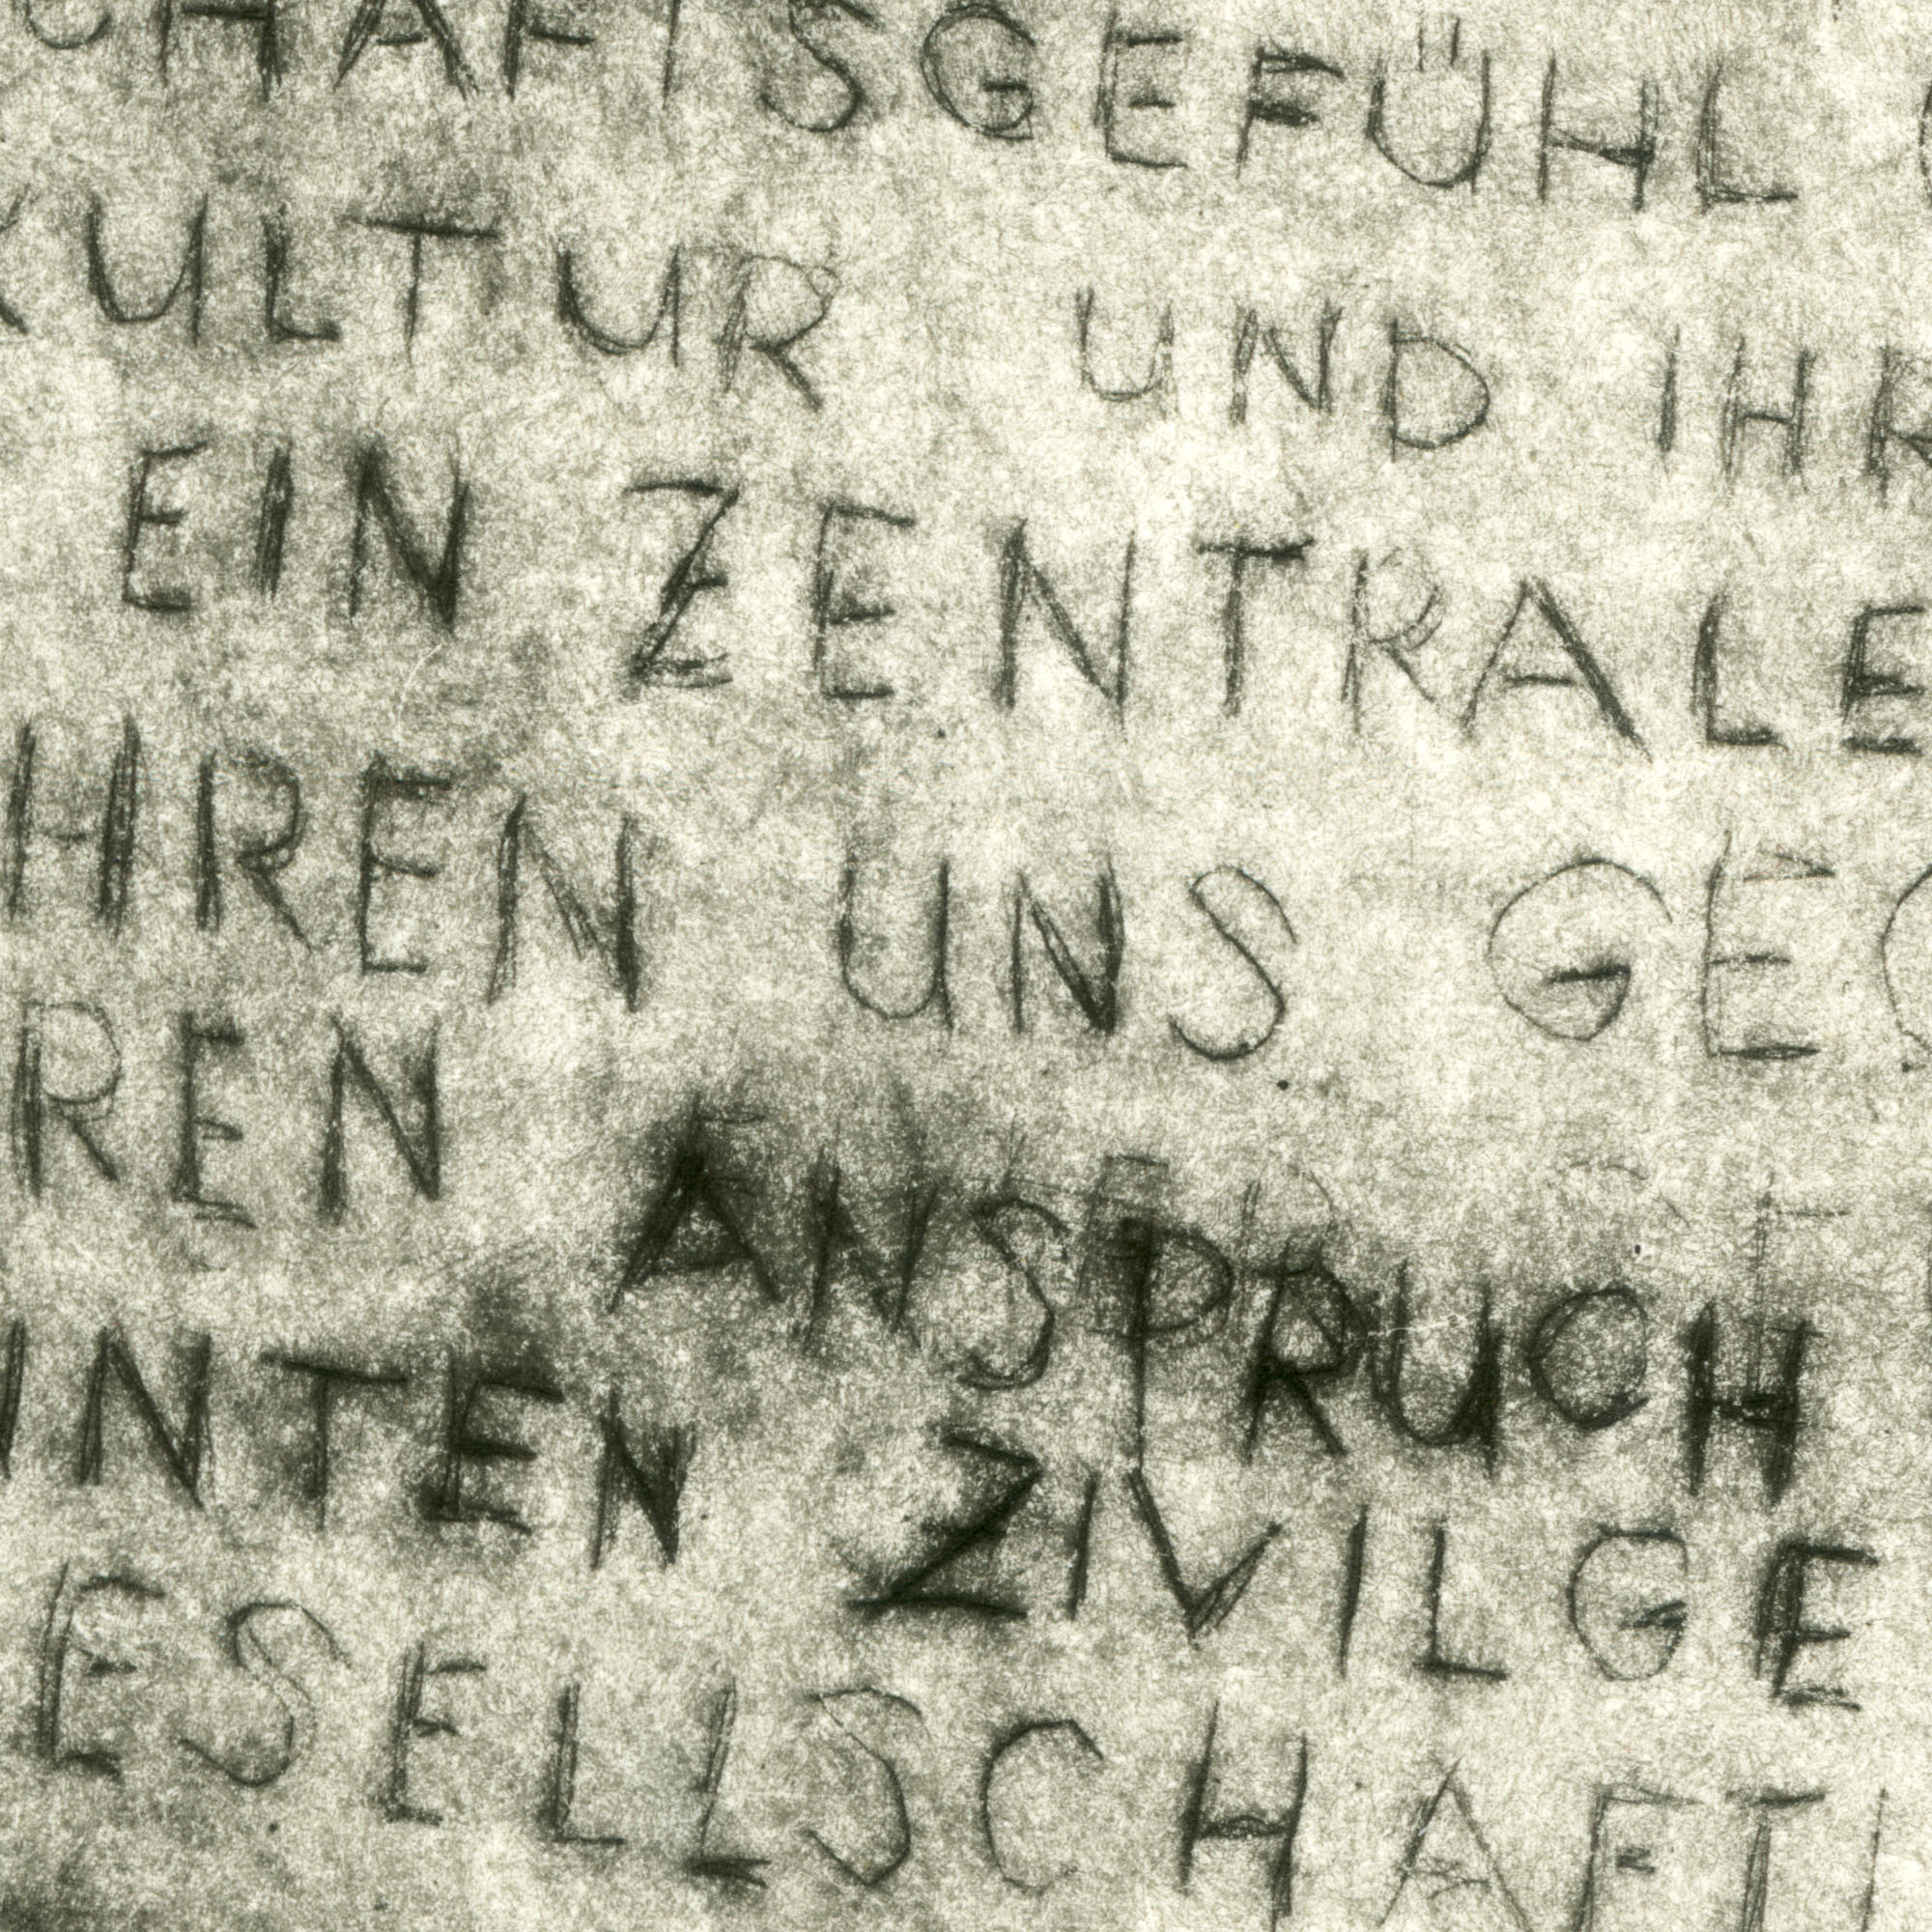 CHAFTSGEFÜHL
KULTUR UND IHR
EIN ZENTRALE
HREN UNS GEG
REN ANSPRUCH
INTEN ZIVILGE
ESELLSCHAFTL